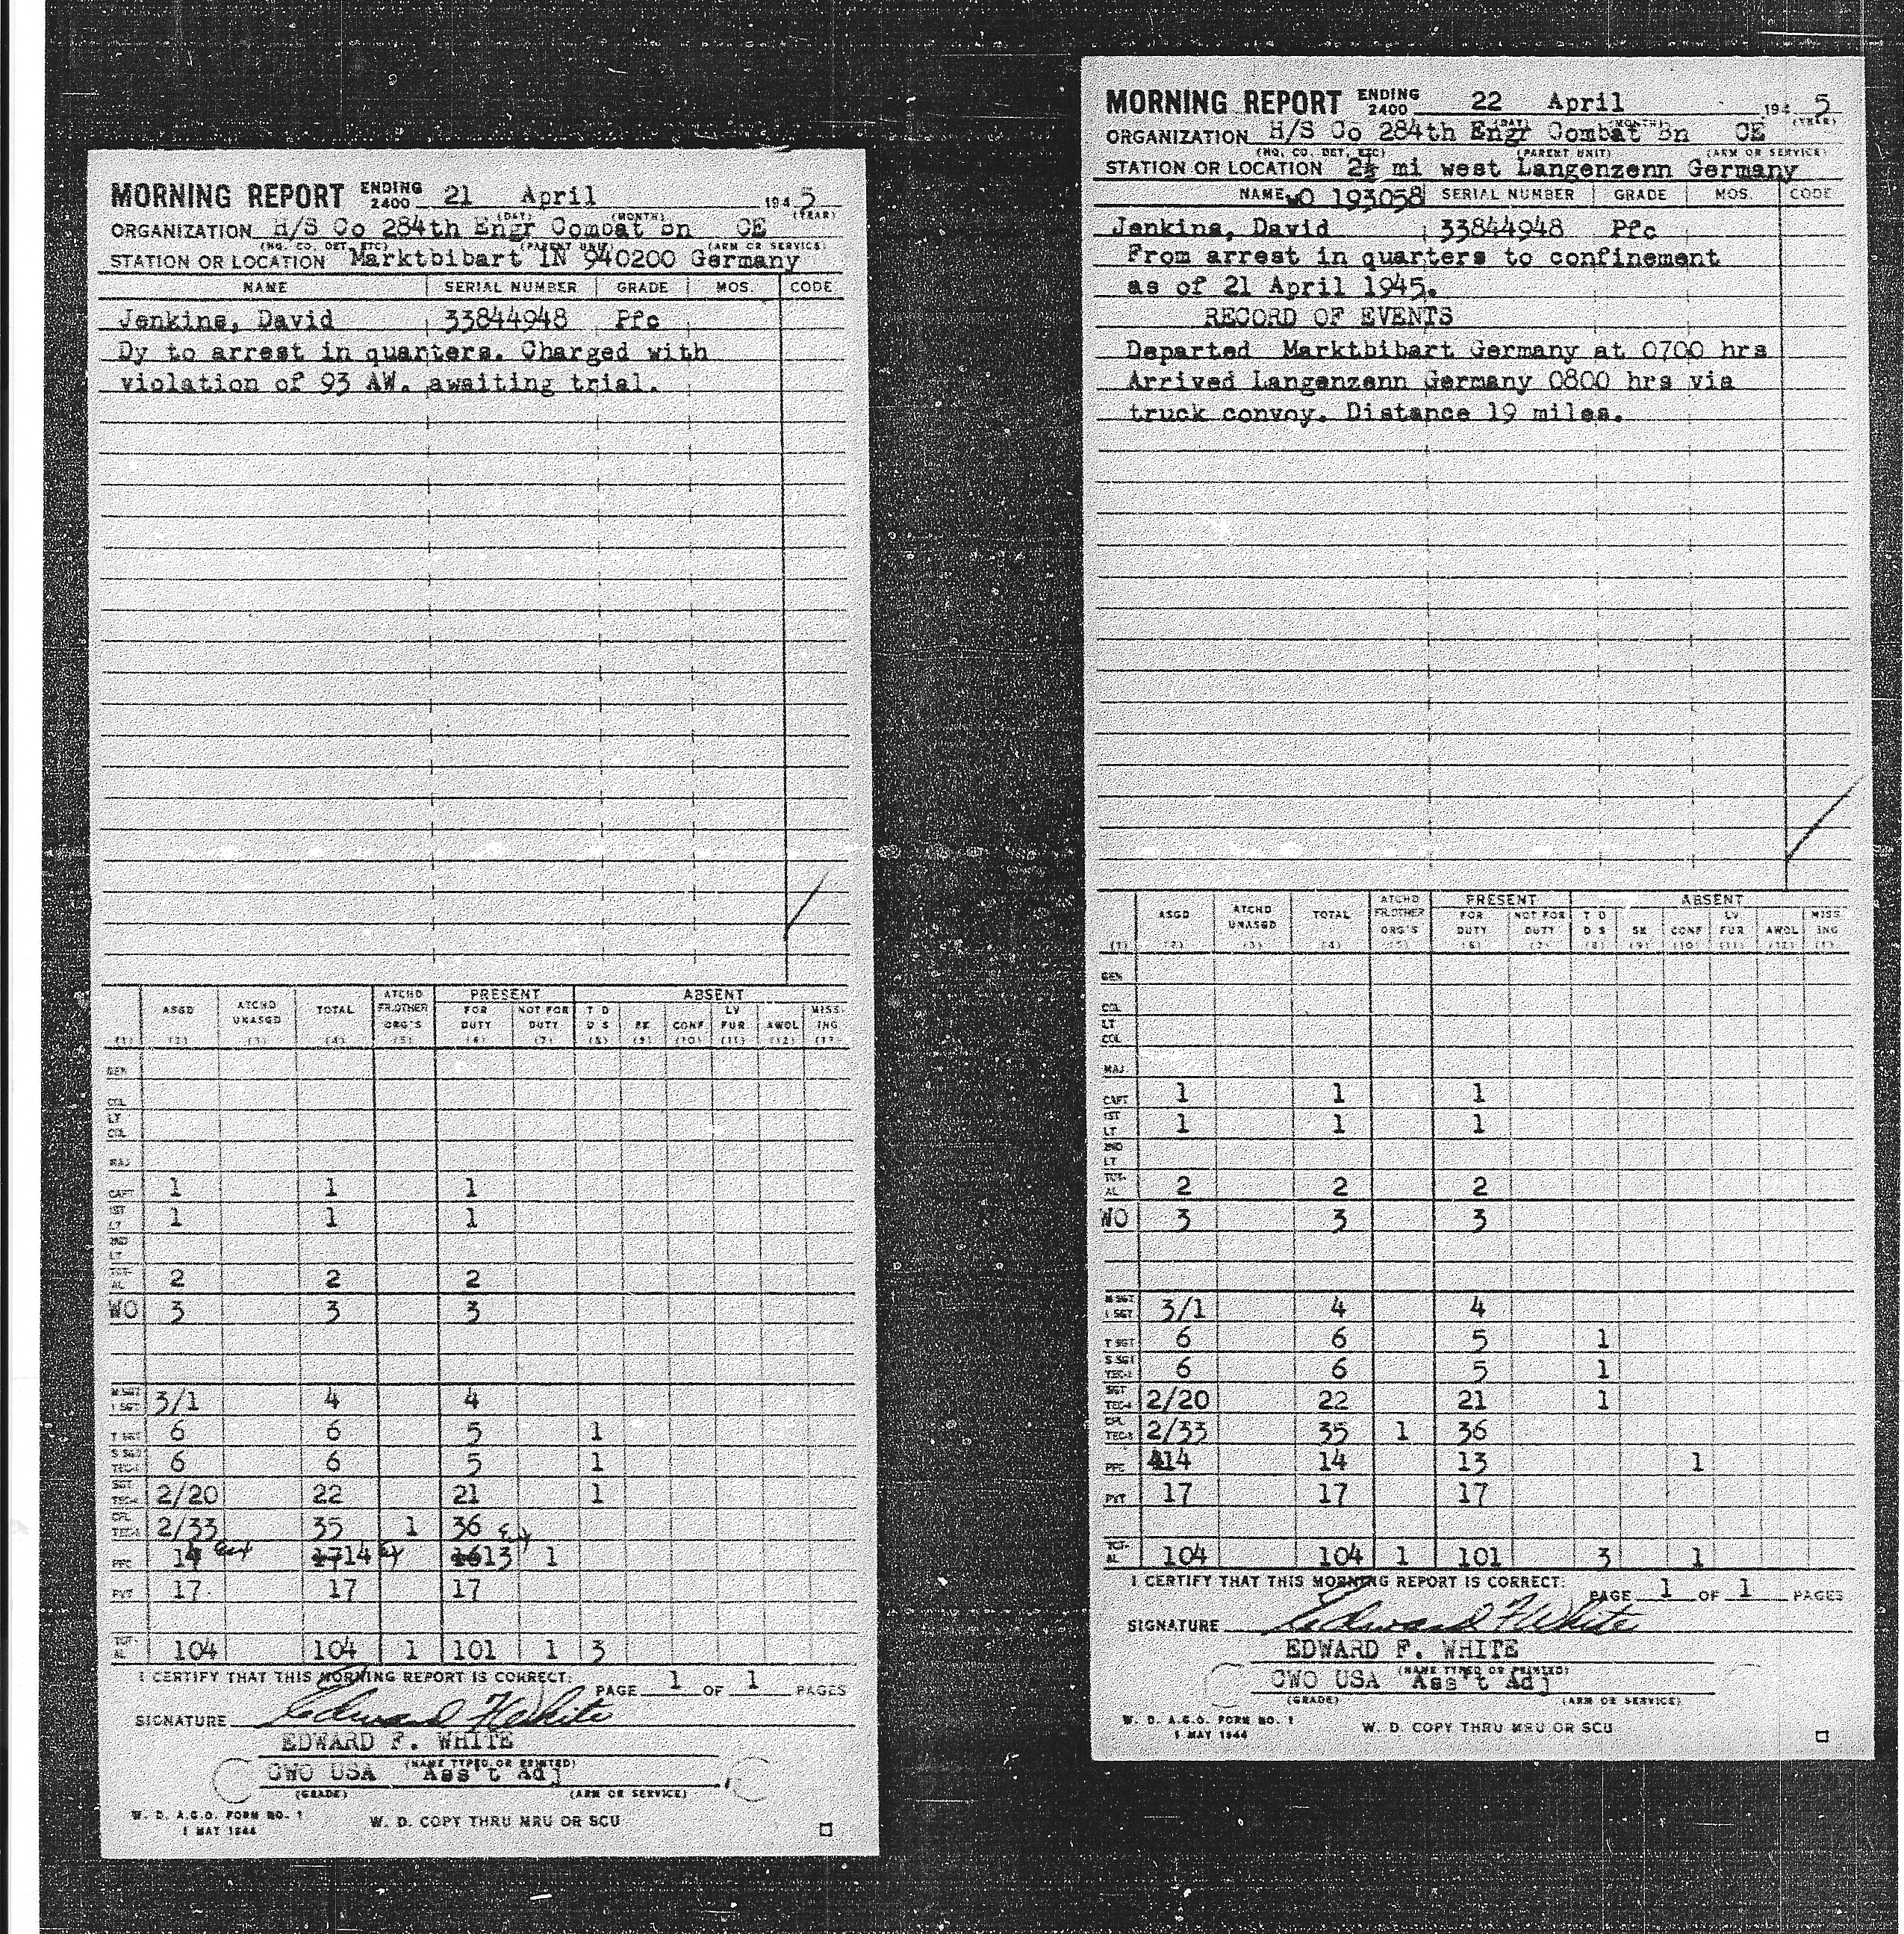 MORNING REPORT ENDING 2400 21 April 194 5
(DAY) (MONTH) (YEAR)
ORGANIZATION H/S Co 284th Engr Combat Bn CE
(HQ. CO. DET. ETC) (PARENT UNIT) (ARM OR SERVICE)
STATION OR LOCATION Marktbibart 1N 940200 Germany
NAME SERIAL NUMBER GRADE MOS. CODE
Jenkins, David 33844948 Pfc
Dy to arrest in quarters. Charged with
violation of 93 AW. awaiting trial.
PRESENT ABSENT
ASGD ATCHD UNASGD TOTAL ATCHD FR.OTHER ORG'S FOR DUTY NOT FOR DUTY T D D S SK CONF LV FUR AWOL MISS ING
(1) (2) (3) (4) (5) (6) (7) (8) (9) (10) (11) (12) (13)
GEN
COL
LT COL
MAJ
CAPT 1 1 1
1ST LT 1 1 1
2ND LT
TOT-AL 2 2 2
WO 3 3 3
M SGT 1 SGT 3/1 4 4
T SGT 6 6 5 1
S SGT TEC-3 6 6 5 1
SGT TEC-4 2/20 22 21 1
CPL TEC-5 2/33 35 1 36
PFC 14 1714 1613 1
PVT 17 17 17
TOT-AL 104 104 1 101 1 3
I CERTIFY THAT THIS MORNING REPORT IS CORRECT:
PAGE 1 OF 1 PAGES
SIGNATURE Edward F White
EDWARD F. WHITE
(NAME TYPED OR PRINTED)
CWO USA Ass't Adj
(GRADE) (ARM OR SERVICE)
W. D. A.G.O. FORM NO. 1
1 MAY 1944
W. D. COPY THRU MRU OR SCU
MORNING REPORT ENDING 2400 22 April 194 5
(DAY) (MONTH) (YEAR)
ORGANIZATION H/S Co 284th Engr Combat Bn CE
(HQ. CO. DET. ETC) (PARENT UNIT) (ARM OR SERVICE)
STATION OR LOCATION 2½ mi west Langenzenn Germany
NAME wO 193058 SERIAL NUMBER GRADE MOS. CODE
Jenkins, David 33844948 Pfc
From arrest in quarters to confinement
as of 21 April 1945.
RECORD OF EVENTS
Departed Marktbibart Germany at 0700 hrs
Arrived Langenzenn Germany 0800 hrs via
truck convoy. Distance 19 miles.
PRESENT ABSENT
ASGD ATCHD UNASGD TOTAL ATCHD FR.OTHER ORG'S FOR DUTY NOT FOR DUTY T D D S SK CONF LV FUR AWOL MISS ING
(1) (2) (3) (4) (5) (6) (7) (8) (9) (10) (11) (12) (13)
GEN
COL
LT COL
MAJ
CAPT 1 1 1
1ST LT 1 1 1
2ND LT
TOT-AL 2 2 2
WO 3 3 3
M SGT 1 SGT 3/1 4 4
T SGT 6 6 5 1
S SGT TEC-3 6 6 5 1
SGT TEC-4 2/20 22 21 1
CPL TEC-5 2/33 35 1 36
PFC 14 14 13 1
PVT 17 17 17
TOT-AL 104 104 1 101 3 1
I CERTIFY THAT THIS MORNING REPORT IS CORRECT:
PAGE 1 OF 1 PAGES
SIGNATURE Edward F White
EDWARD F. WHITE
(NAME TYPED OR PRINTED)
CWO USA Ass't Adj
(GRADE) (ARM OR SERVICE)
W. D. A.G.O. FORM NO. 1
1 MAY 1944
W. D. COPY THRU MRU OR SCU